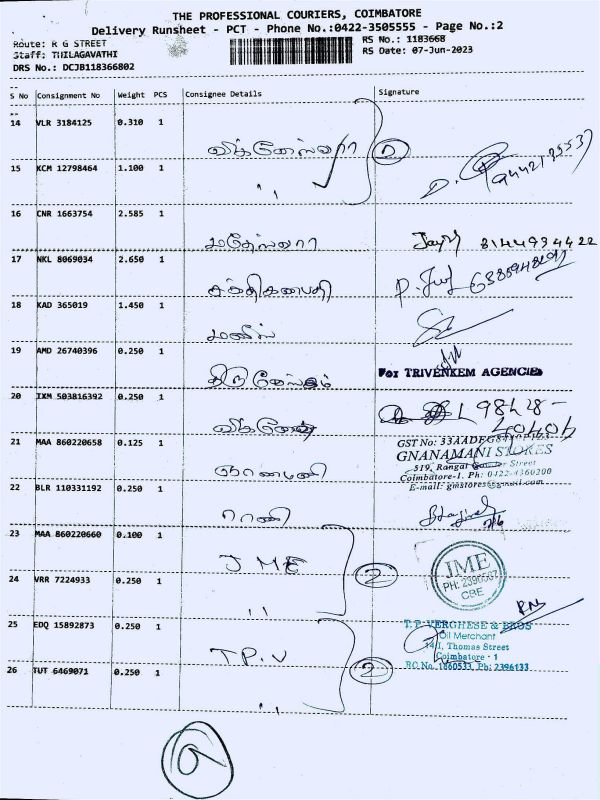 THE PROFESSIONAL COURIERS, COIMBATORE
Delivery Runsheet - PCT - Phone No.:0422-3505555 - Page No.:2
Route: R G STREET
RS No.: 1183668
Staff: THILAGAVATHI
RS Date: 07-Jun-2023
DRS No.: DCJB118366802
S No Consignment No Weight PCS Consignee Details Signature
14 VLR 3184125 0.310 1
விக்னேஸ்வரா 2
15 KCM 12798464 1.100 1
"
16 CNR 1663754 2.585 1
மகேஸ்வரா 8144934422
17 NKL 8069034 2.650 1
சக்திகணபதி
18 KAD 365019 1.450 1
19 AMD 26740396 0.250 1
For TRIVENKEM AGENCIES
20 IXM 503816392 0.250 1
விக்னேஷ் 98428-
40404
21 MAA 860220658 0.125 1
GST No:
GNANAMANI STORES
ஞானமணி 519, Rangai Gowder Street
Coimbatore-1. Ph: 0422-4360200
E-mail: gmstores@gmail.com
22 BLR 110331192 0.250 1
ராணி
23 MAA 860220660 0.100 1
J M E 2
JME
PH: 2390507
CBE
24 VRR 7224933 0.250 1
"
25 EDQ 15892873 0.250 1
T. P. VERGHESE & BROS
Oil Merchant
T.P.V 2 14/1, Thomas Street
Coimbatore - 1
RC No. 1860533, Ph: 2396133
26 TUT 6469071 0.250 1
"
a